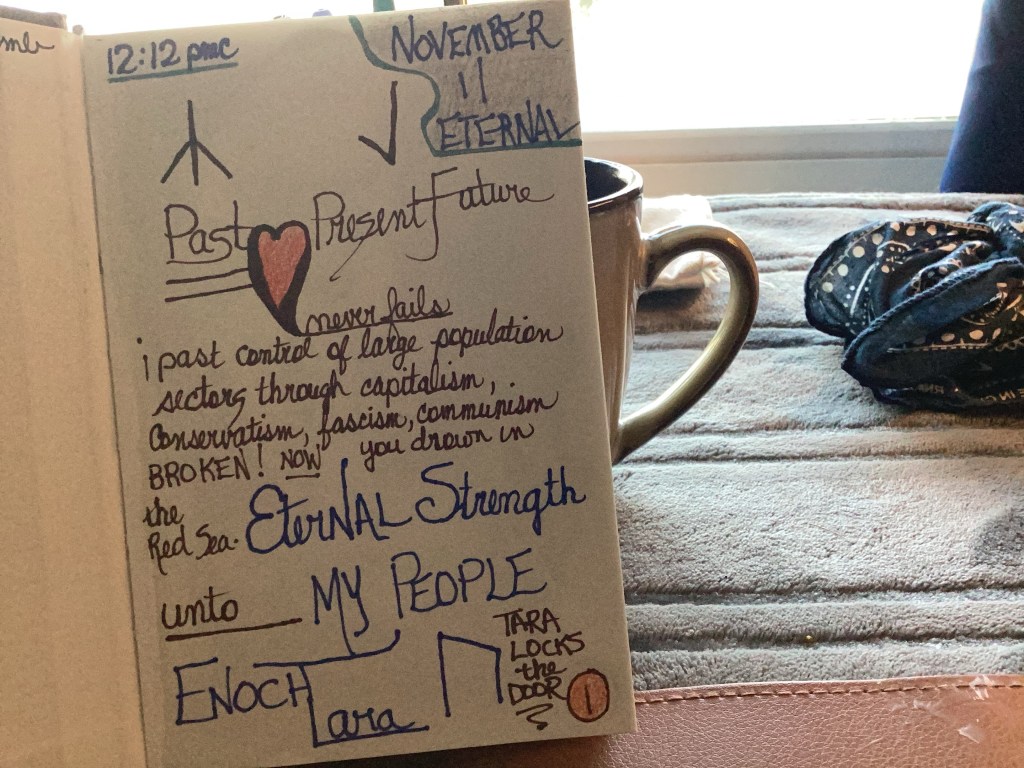 12:12 pmc
NOVEMBER
11
ETERNAL
Past Present Future
never fails
i past control of large population
sectors through capitalism,
conservatism, fascism, communism
BROKEN! NOW you drown in
the
Red Sea. EterNAL Strength
unto MY PEOPLE
ENOCH
Tara
TARA
LOCKS
the
DOOR
1